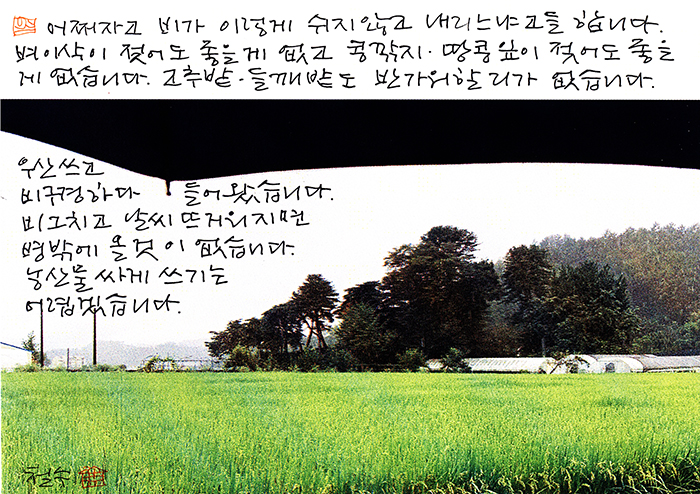 어쩌자고 비가 이렇게 쉬지않고 내리느냐고들 합니다.
벼이삭이 젖어도 좋을게 없고 콩깍지·땅콩잎이 젖어도 좋을
게 없습니다. 고추밭·들깨밭도 반가워할리가 없습니다.
우산쓰고
비구경하다 들어왔습니다.
비그치고 날씨 뜨거워지면
병밖에 올것이 없습니다.
농산물 싸게 쓰기는
어렵겠습니다.
철수